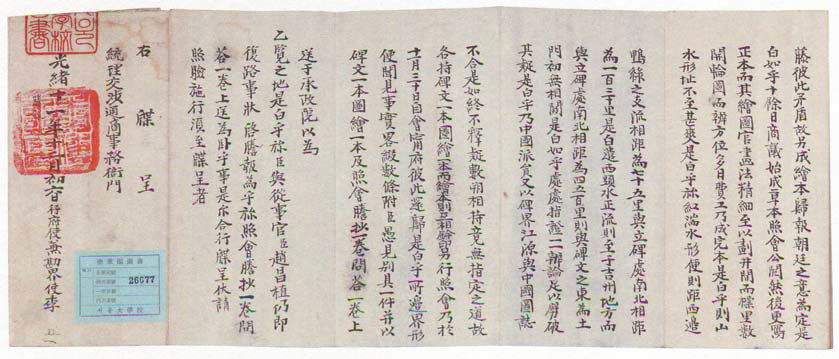 藤彼此矛盾故另成繪本歸報朝廷之意爲定是
白如乎十餘日商議始成草本照會公閱然後更寫
正本而其繪圖官畫法精細至以劃井間而標里數
開輪圖而辨方位多日費工乃成完本是白乎則山
水形址不至甚爽是白乎旀紅湍水形便則距西邊
鴨綠之支流相距爲七十五里與立碑處南北相距
爲一百三十里是白遣西頭水正流則至于吉州地方而
與立碑處南北相距爲四五百里則與碑文之東爲土
門初無相關是白如乎處處指證一一辨論足以劈破
其疑是白乎乃中國派員又以碑界江源與中國圖誌
不合是如終不釋疑數朔相持竟無指定之道故
各持碑文一本圖繪
十一月三十日自會寧府彼此還歸是白乎所邊界形
便聞見事實畧綴數條附臣愚見別具一件并以
碑文一本圖繪一本及照會謄抄一卷問答一卷上
送于承政院以爲
乙覽之地是白乎旀臣與從事官臣趙昌植仍卽
復路事狀 啓謄報爲乎旀照會謄抄一卷問
答一卷上送爲臥乎事是尒合行牒呈伏請
照驗施行須至牒呈者
右 牒 呈
統理交涉通商事務衙門
光緖十一年十二月初 日行府使兼勘界使李
26677
서울大學校